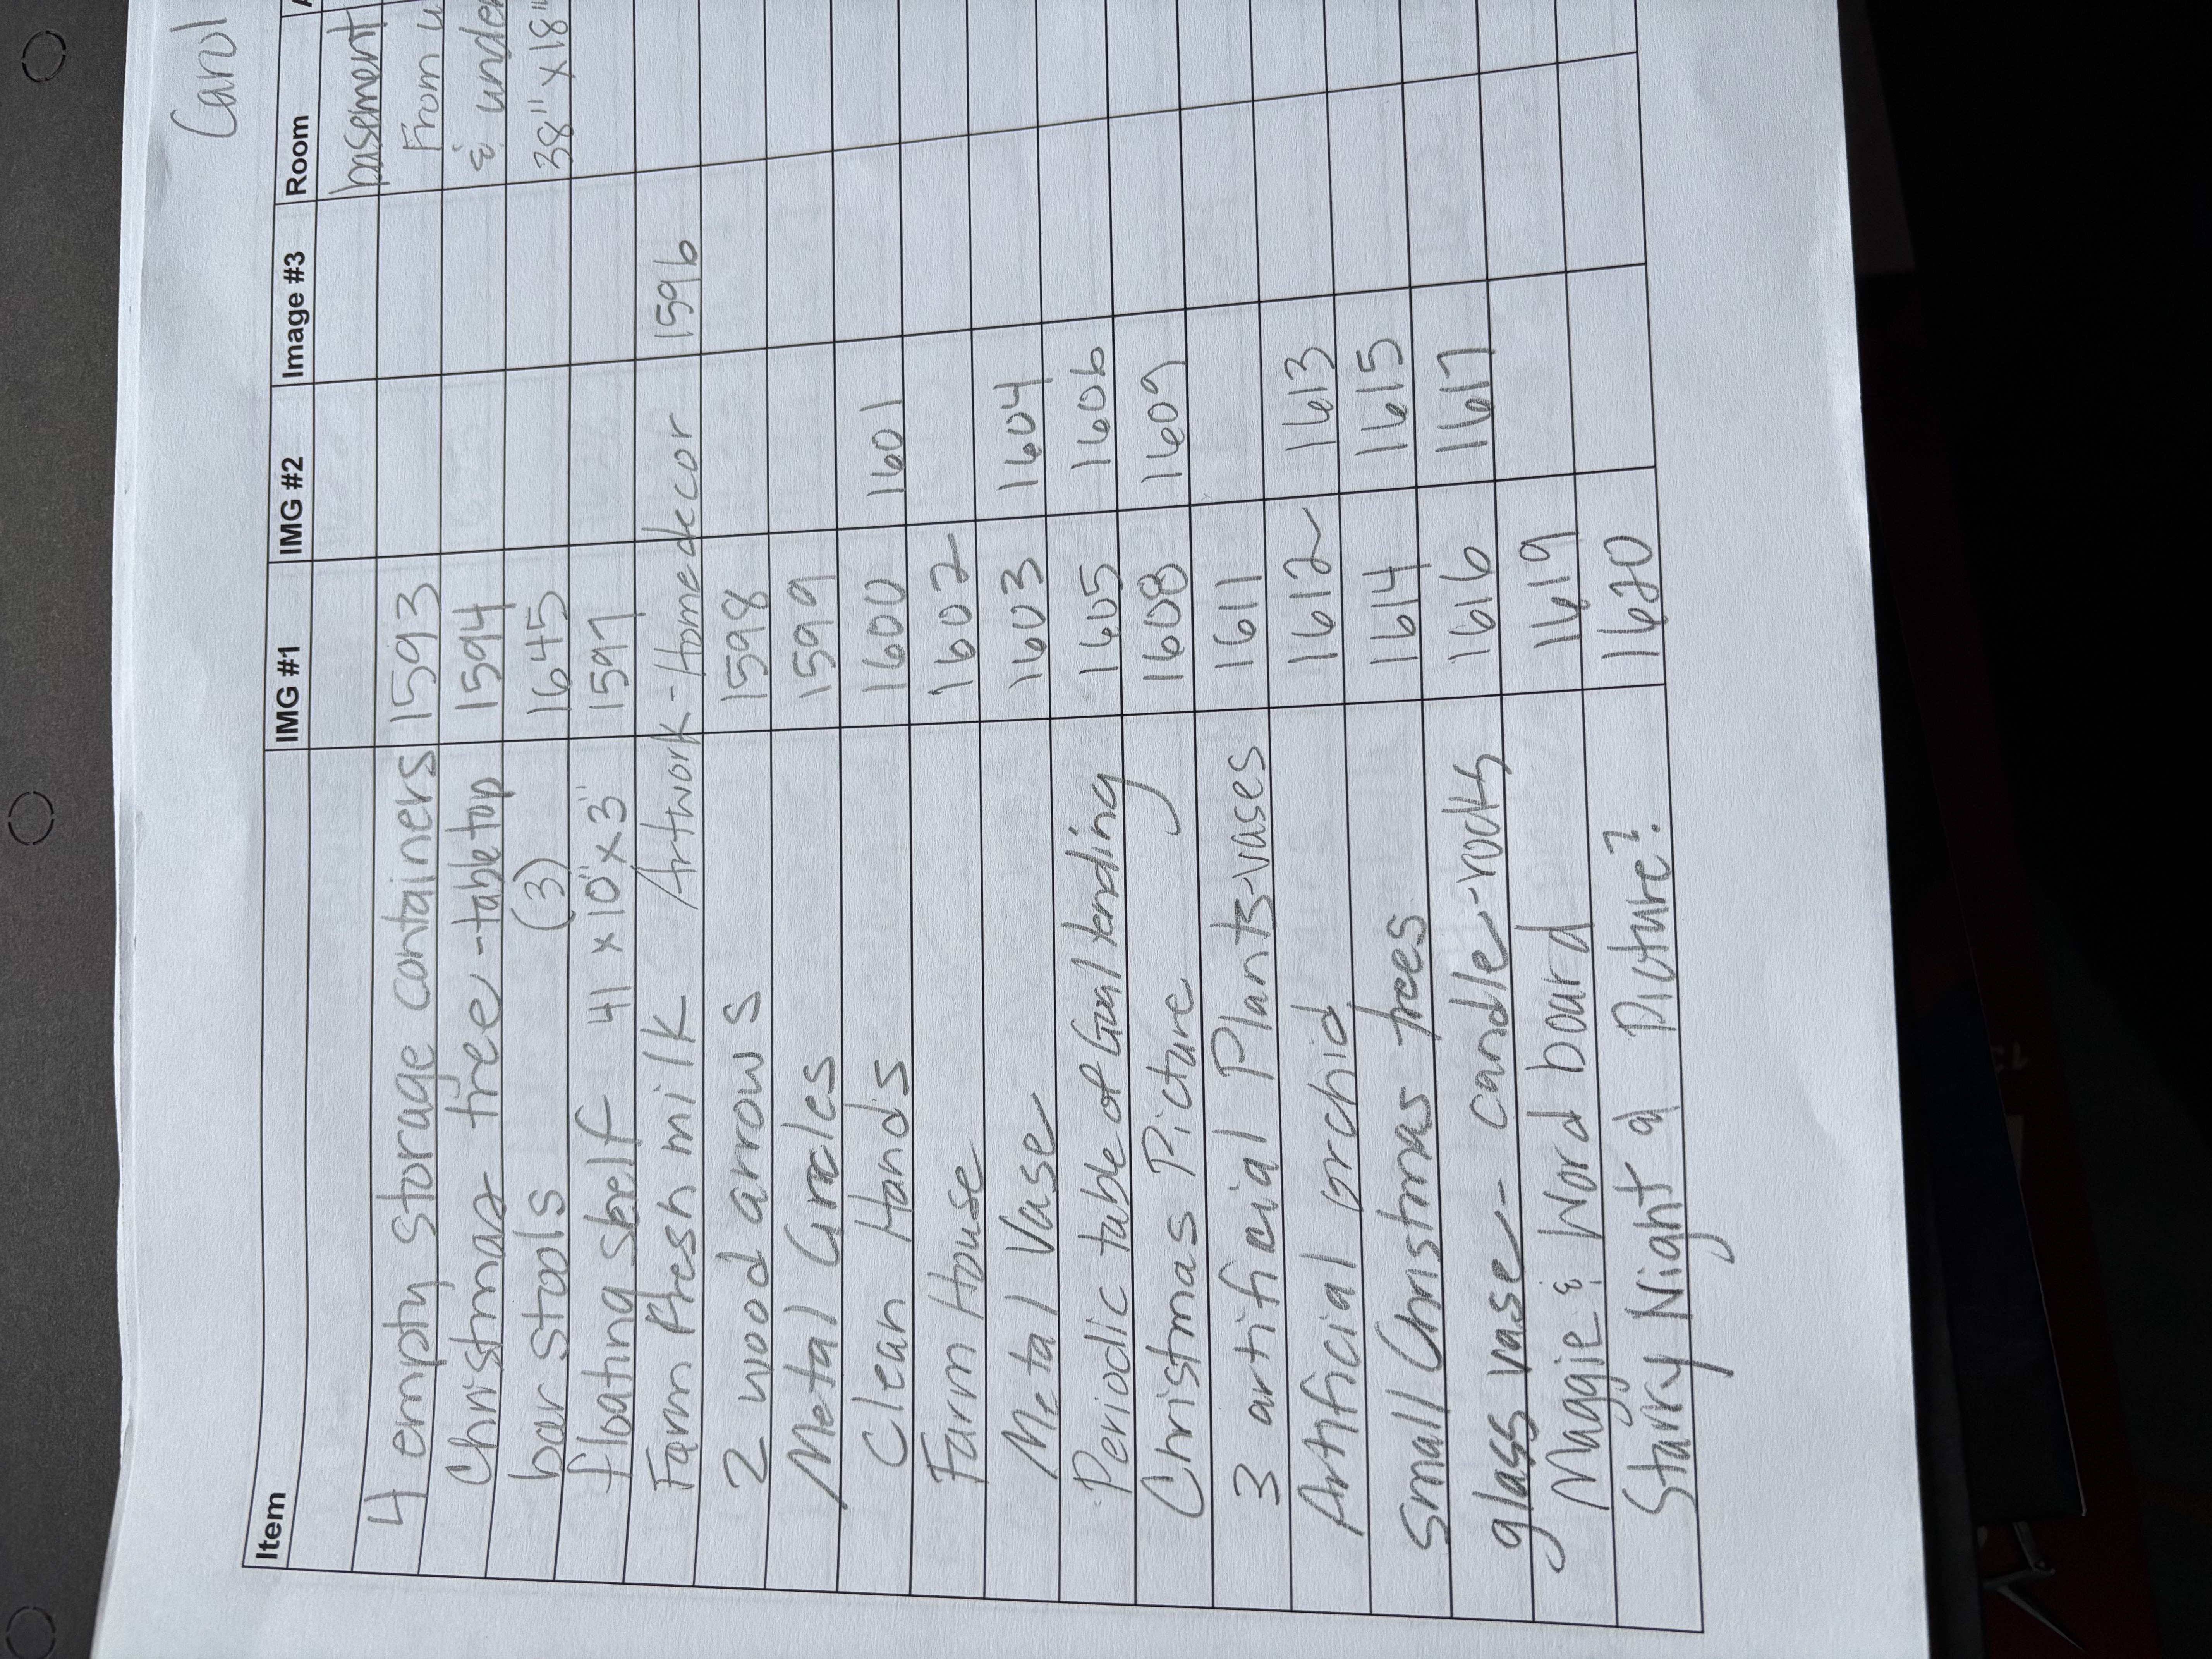 Carol
Item IMG #1 IMG #2 Image #3 Room
basement
4 empty storage containers 1593 From
Christmas tree - tabletop 1594 & under
bar stools (3) 1645 38" x 18"
floating shelf 41 x 10" x 3" 1597
Farm Fresh milk Artwork - Home decor 1596
2 wood arrows 1598
Metal Circles 1599
Clean Hands 1600 1601
Farm House 1602
Metal Vase 1603 1604
Periodic table of Goal tending 1605 1606
Christmas Picture 1608 1609
3 artificial Plants-vases 1611
Artificial orchid 1612 1613
Small Christmas trees 1614 1615
glass vase - candle - rocks 1616 1617
Maggie & Word board 1619
Starry Night a Picture? 1620